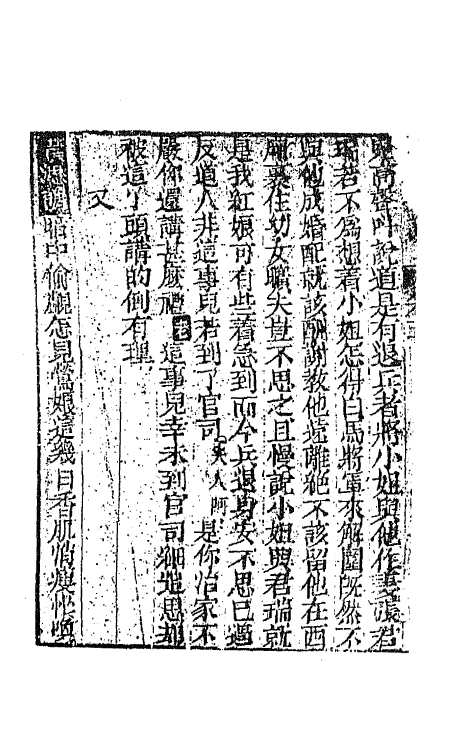 高聲叫說道是有退兵者將小姐與他作妻張君
瑞若不為想着小姐怎得白馬將軍來解圍既然不
與他成婚配就該酬謝教他遠離絶不該留他在西
廂裏住幼女曠夫豈不思之且慢說小姐與君瑞就
是我紅娘可有些着急到而今兵退身安不思已過
反道人非這事兒若到了官司夫人阿是你治家不
嚴你還講甚麽禮老這事兒幸未到官司細追思却
被這丫頭講的倒有理
又
暗中偷覷怎見鶯娘這幾日香肌悄瘦